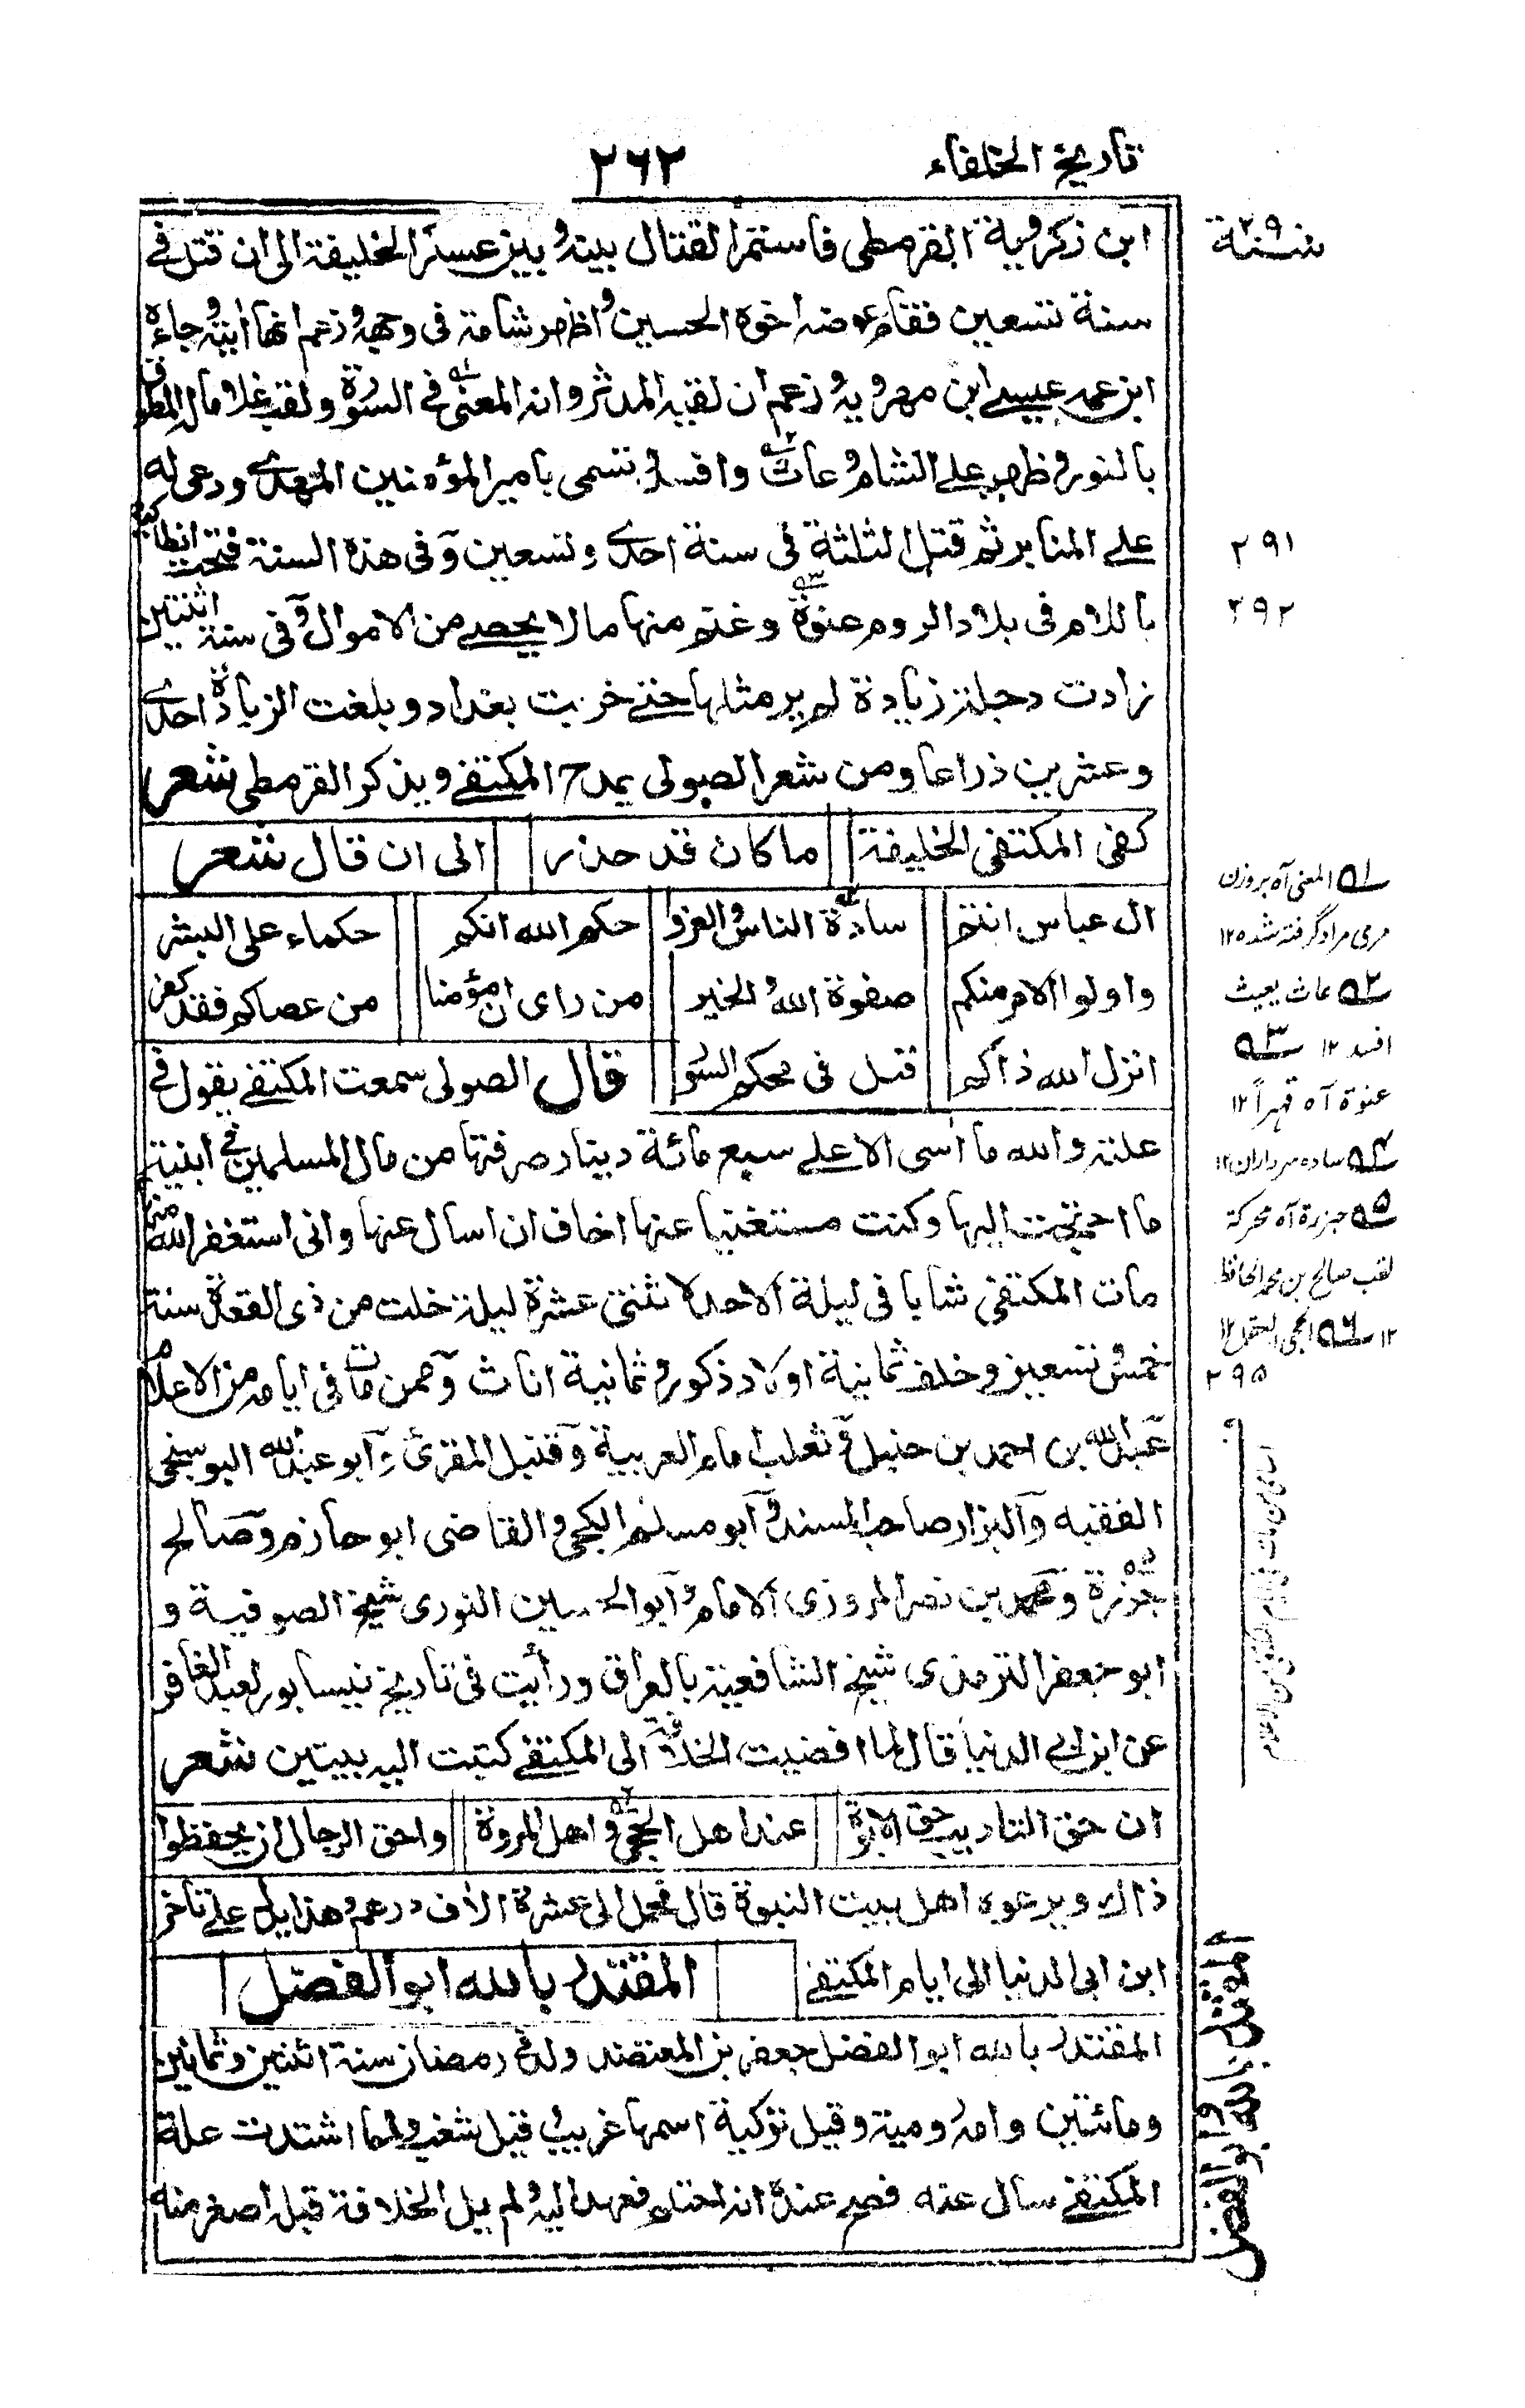 تاريخ الخلفاء
٢٦٢
ابن زكرويه القرمطى فاستمر القتال بينه وبين عسكر الخليفة الى ان قتل فى
سنة تسعين فقام عوضه اخوه الحسين واظهر شامة فى وجهه وزعم انها ايته وجاءه
ابن عمه عيسى ابن مهرويه وزعم ان لقبه المدثر وانه المعنى فى السورة ولقب غلاما له المطوق
بالنور وظهر على الشام وعاث وافسد وتسمى بامير المؤمنين المهدى ودعى له
على المنابر ثم قتل الثلثة فى سنة احدى وتسعين وفى هذه السنة فتحت انطاكية
باللام فى بلاد الروم عنوة وغنم منها ما لا يحصى من الاموال وفى سنة اثنتين
زادت دجلة زيادة لم ير مثلها حتى خربت بغداد وبلغت الزيادة احدى
وعشرين ذراعا ومن شعر الصولى يمدح المكتفى ويذكر القرمطى شعر
كفى المكتفى الخليفة ما كان قد حذر الى ان قال شعر
ال عباس انتم سادة الناس والغرر حكم الله انكم حكماء على البشر
واولوا الامر منكم صفوة الله والخير من راى ان مؤمنا من عصاكم فقد كفر
انزل الله ذاكم قبل فى محكم السور قال الصولى سمعت المكتفى يقول فى
علته والله ما اسى الا على سبع مائة دينار صرفتها من مال المسلمين فى ابنية
ما احتجت اليها وكنت مستغنيا عنها اخاف ان اسال عنها وانى استغفر الله منها
مات المكتفى شابا فى ليلة الاحد لاثنتى عشرة ليلة خلت من ذى القعدة سنة
خمس وتسعين وخلف ثمانية اولاد ذكور وثمانية اناث وممن مات فى ايامه من الاعلام
عبد الله بن احمد بن حنبل وثعلب امام العربية وقنبل المقرئ وابو عبد الله البوسنجى
الفقيه والبزار صاحب المسند وابو مسلم الكجى والقاضى ابو حازم وصالح
جزرة ومحمد بن نصر المروزى الامام وابو الحسين النورى شيخ الصوفية و
ابو جعفر الترمذى شيخ الشافعية بالعراق ورأيت فى تاريخ نيسابور لعبد الغافر
عن ابن ابى الدنيا قال لما افضيت الخلافة الى المكتفى كتبت اليه ببيتين شعر
ان حق التاديب حق الابوة عند اهل الحجى واهل المروة واحق الرجال ان يحفظوا
ذاك ويرعوه اهل بيت النبوة قال فحمل الى عشرة الاف درهم وهذا يدل على تاخر
ابن ابى الدنيا الى ايام المكتفى المقتدر بالله ابو الفضل
المقتدر بالله ابو الفضل جعفر بن المعتضد ولد فى رمضان سنة اثنتين وثمانين
ومائتين وامه رومية وقيل تركية اسمها غريب وقيل شغب ولما اشتدت علة
المكتفى سال عنه فصح عنده انه احتلم فعهد اليه ولم يل الخلافة قبله اصغر منه
سنة ٢٩٠
٢٩١
٢٩٢
١ المعنى آه بروزن
مرمى مراد گرفته شده ١٢
٢ عاث يعيث
افسد ١٢ ٣
عنوة آه قهراً ١٢
٤ ساده سرداران ١٢
٥ جزرة آه محركة
لقب صالح بن محمد الحافظ
١٢ ٦ الحجى العقل ١٢
٢٩٥
المقتدر بالله ابو الفضل